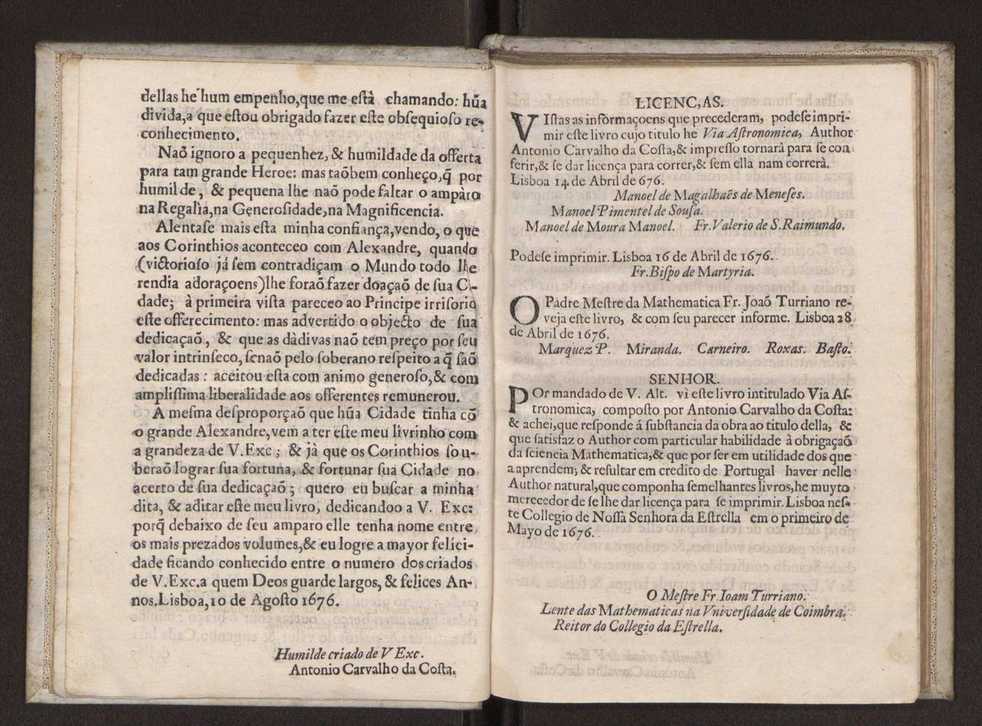 dellas he hum empenho,que me eſtà chamando: hũa
divida,a que eſtou obrigado fazer eſte obſequioſo re-
conhecimento.
Naõ ignoro a pequenhez, & humildade da offerta
para tam grande Heroe: mas taõbem conheço,q̃ por
humilde, & pequena lhe naõ pode faltar o ampàro
na Regalia,na Generoſidade,na Magnificencia.
Alentaſe mais eſta minha confiança,vendo, o que
aos Corinthios aconteceo com Alexandre, quando
(victorioſo já ſem contradiçam o Mundo todo lhe
rendia adoraçoens)lhe foraõ fazer doaçaõ de ſua Ci-
dade; à primeira viſta pareceo ao Principe irriſorio
eſte offerecimento: mas advertido o objecto de ſua
dedicaçaõ, & que as dàdivas naõ tem preço por ſeu
valor intrinſeco, ſenaõ pelo ſoberano reſpeito a q̃ ſaõ
dedicadas: aceitou eſta com animo generoſo,& com
ampliſſima liberalidade aos offerentes remunerou.
A meſma deſproporçaõ que hũa Cidade tinha cõ
o grande Alexandre,vem a ter eſte meu livrinho com
a grandeza de V.Exc; & já que os Corinthios ſou-
beraõ lograr ſua fortuna, & fortunar ſua Cidade no
acerto de ſua dedicaçaõ; quero eu buſcar a minha
dita, & aditar eſte meu livro, dedicandoo a V. Exc:
porq̃ debaixo de ſeu amparo elle tenha nome entre
os mais prezados volumes,& eu logre a mayor felici-
dade ficando conhecido entre o numero dos criados
de V.Exc.a quem Deos guarde largos, & felices An-
nos.Lisboa,10 de Agoſto 1676.
Humilde criado de V Exc.
Antonio Carvalho da Coſta.
LICENC,AS.
VIſtas as informaçoens que precederam, podeſe impri-
mir eſte livro cujo titulo he Via Aſtronomica, Author
Antonio Carvalho da Coſta,& impreſſo tornará para ſe con
ferir,& ſe dar licença para correr,& ſem ella nam correrà.
Lisboa 14 de Abril de 676.
Manoel de Magalhaẽs de Meneſes.
Manoel Pimentel de Souſa.
Manoel de Moura Manoel. Fr.Valerio de S.Raimundo.
Podeſe imprimir. Lisboa 16 de Abril de 1676.
Fr.Biſpo de Martyria.
O Padre Meſtre da Mathematica Fr. Joaõ Turriano re-
veja eſte livro, & com ſeu parecer informe. Lisboa 28
de Abril de 1676.
Marquez P. Miranda. Carneiro. Roxas. Baſto.
SENHOR.
POr mandado de V. Alt. vi eſte livro intitulado Via Aſ-
tronomica, compoſto por Antonio Carvalho da Coſta:
& achei,que reſponde á ſubſtancia da obra ao titulo della, &
que ſatisfaz o Author com particular habilidade à obrigaçaõ
da ſciencia Mathematica,& que por ſer em utilidade dos que
a aprendem, & reſultar em credito de Portugal haver nelle
Author natural,que componha ſemelhantes livros,he muyto
merecedor de ſe lhe dar licença para ſe imprimir.Lisboa neſ-
te Collegio de Noſſa Senhora da Eſtrella em o primeiro de
Mayo de 1676.
O Meſtre Fr.Ioam Turriano.
Lente das Mathematicas na Vniverſidade de Coimbra.
Reitor do Collegio da Eſtrella.